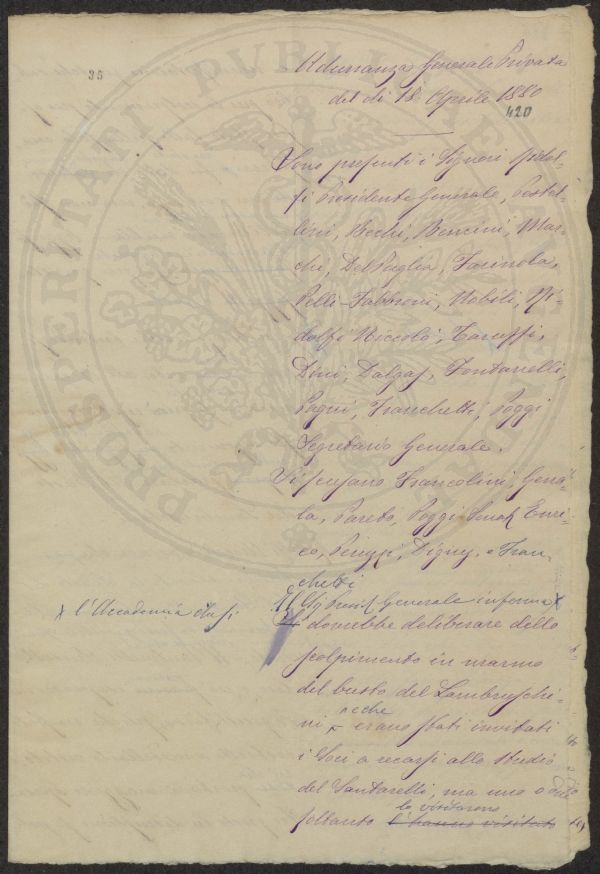 35
Adunanza Generale Privata
del dì 18 Aprile 1880
420
Sono presenti i Signori Ridol-
fi Presidente Generale, Pestel-
lini, Bechi, Bencini, Mar-
chi, Del Puglia, Farinola,
Pelli-Fabbroni, Nobili, Ri-
dolfi Niccolò, Taruffi,
Dini, Dalgas, Fontanelli,
Pagni, Franchetti, Poggi
Segretario Generale.
Si scusano Francolini, Geno-
la, Pareto, Poggi Senat. Enri-
co, Peruzzi, Digny, e Fran
chetti
Il Presid Generale informa x
x l'Accademia che si
dovrebbe deliberare dello
scolpimento in marmo
del busto del Lambruschi-
ni e che erano stati invitati
i Soci a recarsi allo studio
del Santarelli, ma uno o due
soltanto lo visitarono
l'hanno visitato
PROSPERITATI PVBLICAE AVGENDAE